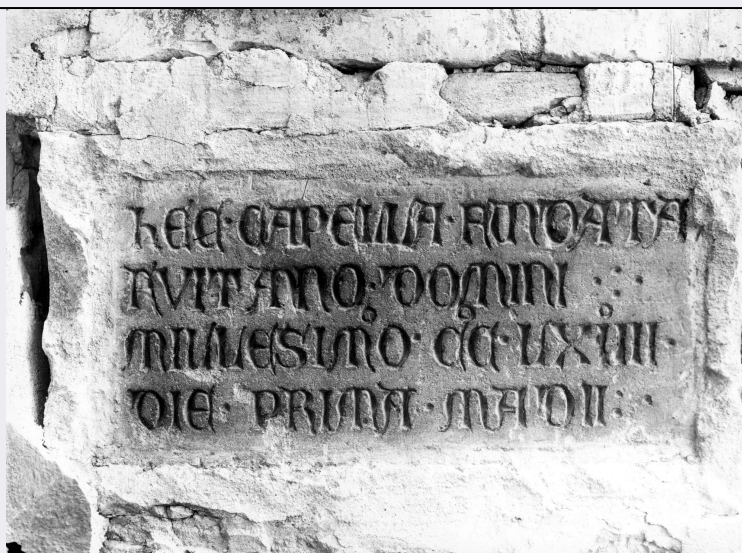 hEC · CAPELLA · FUNDATA
FUIT ANNO · DOMINI
MILLESIMO · CC · LXIIII ·
DIE · PRIMA · MADII